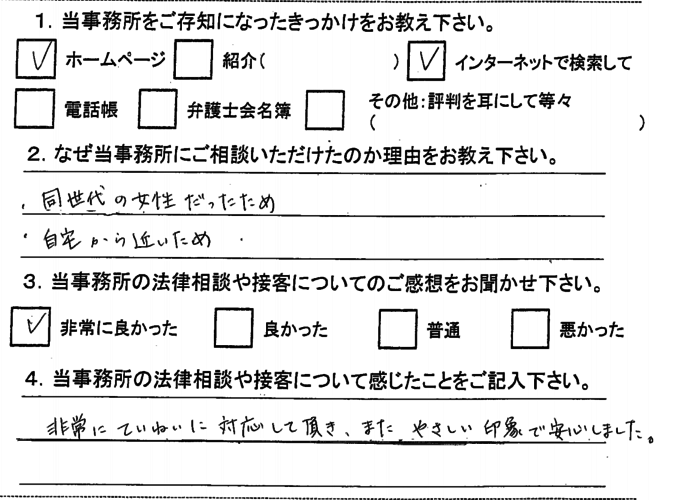 1. 当事務所をご存知になったきっかけをお教え下さい。
☑ ホームページ □ 紹介( ) ☑ インターネットで検索して
□ 電話帳 □ 弁護士会名簿 □ その他:評判を耳にして等々
( )
2. なぜ当事務所にご相談いただけたのか理由をお教え下さい。
・同世代の女性だったため
・自宅から近いため
3. 当事務所の法律相談や接客についてのご感想をお聞かせ下さい。
☑ 非常に良かった □ 良かった □ 普通 □ 悪かった
4. 当事務所の法律相談や接客について感じたことをご記入下さい。
非常にていねいに対応して頂き、また やさしい印象で安心しました。